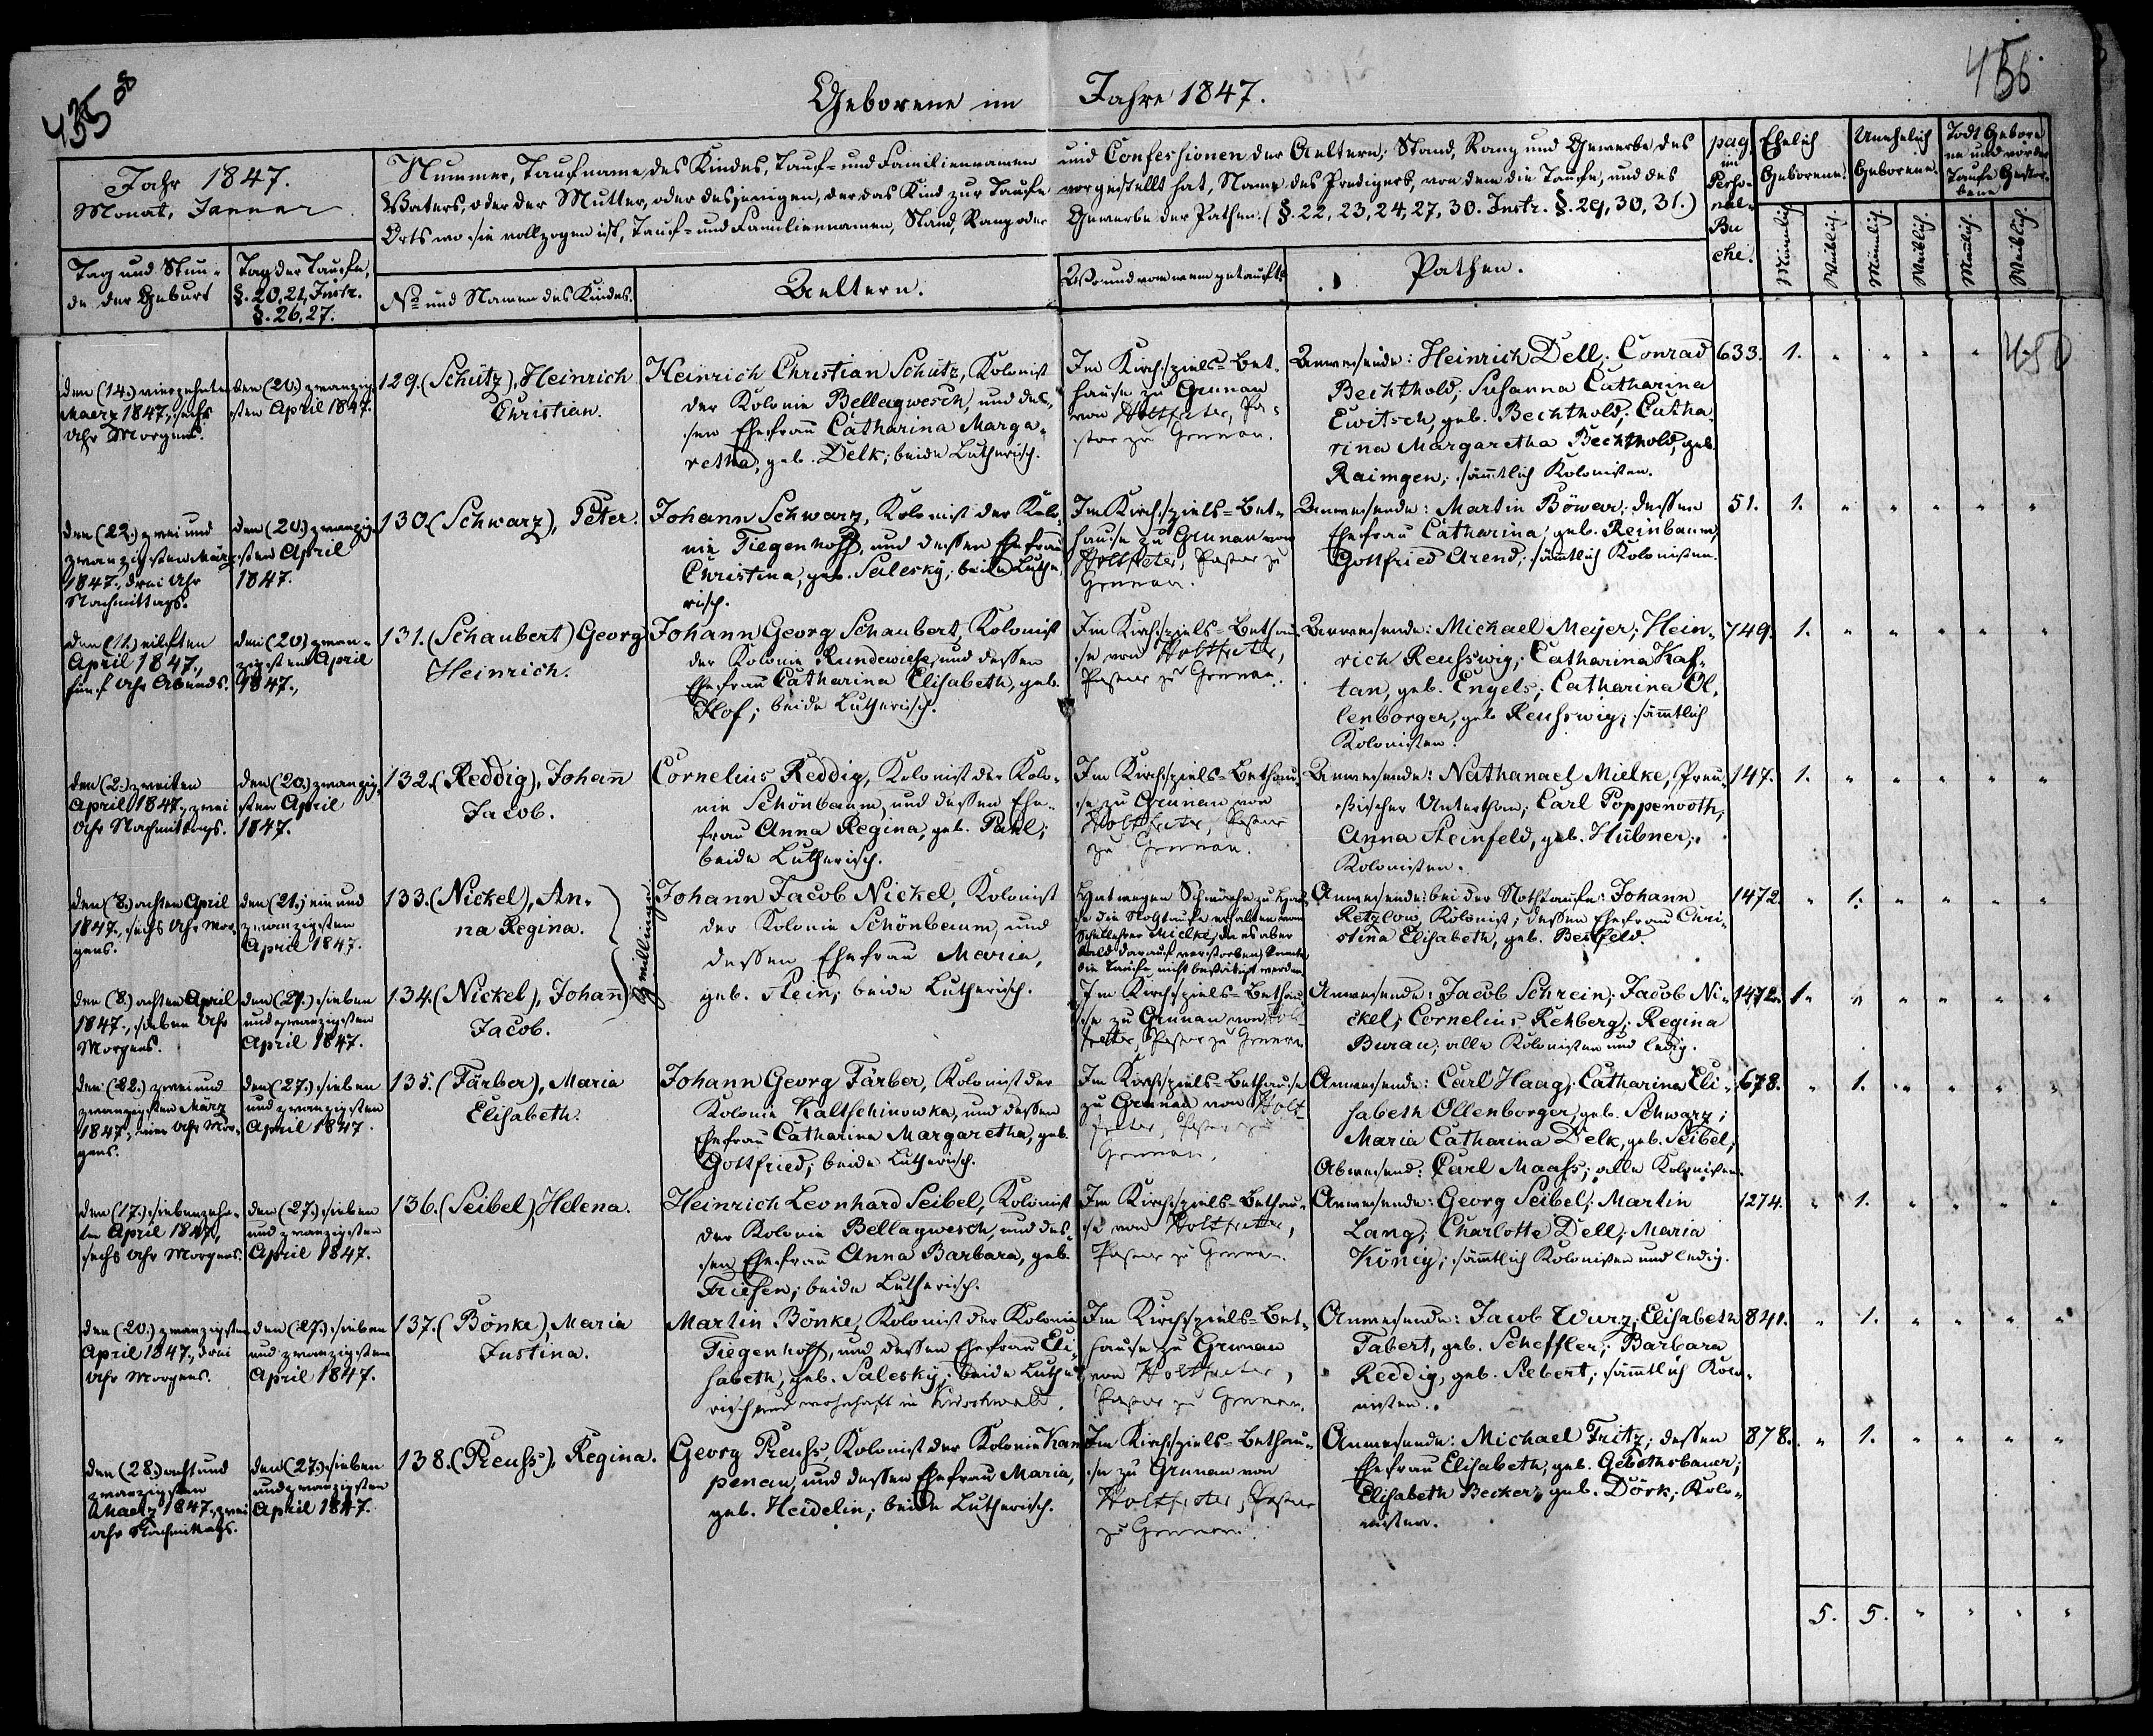 455
456
Geborene im Jahre 1847.
Jahr 1847.
Monat, Januar
Tag und Stun-
de der Geburt
Tag der Taufe,
§. 20, 21, Instr.
§. 26, 27.
Nummer, Taufname des Kindes, Tauf- und Familiennamen und Confessionen der Aeltern; Stand, Rang und Gewerbe des
Vaters, oder der Mutter, oder desjenigen, der das Kind zur Taufe vorgestellt hat, Name des Predigers, von dem die Taufe, und des
Orts wo sie vollzogen ist, Tauf- und Familiennamen, Stand, Rang oder Gewerbe der Pathen. (§. 22, 23, 24, 27, 30. Instr. §. 29, 30, 31.)
No und Namen des Kindes.
Aeltern.
Wo und von wem getauft.
Pathen.
pag.
im
Perso-
nal-
Bu
che.
Ehelich
Geborene.
Unehelich
Geborene.
Todt Gebore
ne und vor der
Taufe Gestor-
bene
Männlich.
Weiblich.
Männlich.
Weiblich.
Männlich.
Weiblich.
den (14.) vierzehnten
Maerz 1847., sechs
Uhr Morgens.
den (20.) zwanzig-
sten April 1847.
129. (Schütz), Heinrich
Christian.
Heinrich Christian Schütz, Kolonist
der Kolonie Bellagwesch, und des-
sen Ehefrau Catharina Marga-
retha, geb. Delk; beide Lutherisch.
Im Kirchspiels-Bet-
hause zu Grunau
von Holtfreter, Pa-
stor zu Grunau.
Anwesende: Heinrich Dell; Conrad
Bechthold; Susanna Catharina
Ewitsch, geb. Bechthold; Catha-
rina Margaretha Bechthold, geb.
Raimgen; sämtlich Kolonisten.
633. 1. " " " "
den (22.) zwei und
zwanzigsten März
1847., drei Uhr
Nachmittags.
den (20.) zwanzig-
sten April
1847.
130. (Schwarz), Peter.
Johann Schwarz, Kolonist der Kolo-
nie Tiegenhoff, und dessen Ehefrau
Christina, geb. Salesky; beide Luthe-
risch.
Im Kirchspiels-Bet-
hause zu Grunau von
Holtfreter, Pastor zu
Grunau.
Anwesende: Martin Böwer; dessen
Ehefrau Catharina, geb. Reinbaum;
Gottfried Arend; sämtlich Kolonisten.
51. 1. " " " " "
den (11.) eilften
April 1847.,
fünf Uhr Abends.
den (20.) zwan-
zigsten April
1847.,
131. (Schaubert) Georg
Heinrich.
Johann Georg Schaubert, Kolonist
der Kolonie Rundewiese, und dessen
Ehefrau Catharina Elisabeth, geb.
Hof; beide Lutherisch.
Im Kirchspiels-Bethau-
se von Holtfreter,
Pastor zu Grunau.
Anwesende: Michael Meyer; Hein-
rich Reusswig; Catharina Kaf-
tan, geb. Engels; Catharina Ol-
lenborger, geb Reusswig; sämtlich
Kolonisten.
749. 1. " " " " "
den (2.) zweiten
April 1847., zwei
Uhr Nachmittags.
den (20.) zwanzig-
sten April
1847.
132. (Reddig), Johann
Jacob.
Cornelius Reddig, Kolonist der Kolo-
nie Schönbaum, und dessen Ehe-
frau Anna Regina, geb. Pahl;
beide Lutherisch.
Im Kirchspiels-Bethau-
se zu Grunau von
Holtfreter, Pastor
zu Grunau.
Anwesende: Nathanael Mielke, Preu-
ssischer Unterthan; Carl Poppenooth;
Anna Steinfeld, geb. Hübner;
Kolonisten.
147. 1. " " " " "
den (8.) achten April
1847., sechs Uhr Mor-
gens.
den (21.) ein und
zwanzigsten
April 1847.
133. (Nickel), An-
na Regina.
Zwillinge
Johann Jacob Nickel, Kolonist
der Kolonie Schönbaum, und
dessen Ehefrau Maria,
geb. Stein; beide Lutherisch.
Hat wegen Schwäche zu Hau-
se die Nothtaufe erhalten vom
Schullehrer Mielke, da es aber
bald darauf verstorben, konnte
die Taufe nicht bestätigt werden.
Anwesende bei der Nothtaufe: Johann
Retzlow, Kolonist; dessen Ehefrau Chri-
stina Elisabeth, geb. Beilfeld.
1472. " 1. " " " "
den (8.) achten April
1847., sieben Uhr
Morgens.
den (27.) sieben
und zwanzigsten
April 1847.
134. (Nickel), Johann
Jacob.
Im Kirchspiels-Bethau-
se zu Grunau von Holt-
freter, Pastor zu Grunau
Anwesende: Jacob Schrein; Jacob Ni-
ckel; Cornelius Rehberg; Regina
Burau; alle Kolonisten und ledig.
1472. 1. " " " " "
den (22.) zwei und
zwanzigsten März
1847., vier Uhr Mor-
gens.
den (27.) sieben
und zwanzigsten
April 1847.
135. (Färber), Maria
Elisabeth.
Johann Georg Färber, Kolonist der
Kolonie Kaltschinowka, und dessen
Ehefrau Catharina Margaretha, geb.
Gottfried; beide Lutherisch.
Im Kirchspiels-Bethause
zu Grunau von Holt-
freter, Pastor zu
Grunau.
Anwesende: Carl Haag; Catharina Eli-
sabeth Ollenborger, geb. Schwarz;
Maria Catharina Delk, geb. Seibel;
Abwesend: Carl Maass; alle Kolonisten.
678. " 1. " " " "
den (17.) siebenzehn-
ten April 1847,
sechs Uhr Morgens.
den (27.) sieben
und zwanzigsten
April 1847.
136. (Seibel), Helena.
Heinrich Leonhard Seibel, Kolonist
der Kolonie Bellagwesch, und des-
sen Ehefrau Anna Barbara, geb.
Friesen; beide Lutherisch.
Im Kirchspiels-Bethau-
se von Holtfreter,
Pastor zu Grunau.
Anwesende: Georg Seibel; Martin
Lang; Charlotte Dell; Maria
König; sämtlich Kolonisten und ledig.
1274. " 1. " " " "
den (20.) zwanzigsten
April 1847., drei
Uhr Morgens.
den (27.) sieben
und zwanzigsten
April 1847.
137. (Bönke), Maria
Justina.
Martin Bönke, Kolonist der Kolonie
Tiegenhoff, und dessen Ehefrau Eli-
sabeth, geb. Salesky; beide Luthe-
risch und wohnhaft in Kirschwald.
Im Kirchspiels-Bet-
hause zu Grunau
von Holtfreter,
Pastor zu Grunau.
Anwesende: Jacob Wurz; Elisabeth
Tabert, geb. Scheffler; Barbara
Reddig, geb. Siebert; sämtlich Kolo-
nisten.
841. " 1. " " " "
den (28.) acht und
zwanzigsten
Maerz 1847., zwei
Uhr Nachmittags.
den (27.) sieben
und zwanzigsten
April 1847.
138. (Preuss), Regina.
Georg Preuss, Kolonist der Kolonie Kam-
penau, und dessen Ehefrau Maria,
geb. Heidelin; beide Lutherisch.
Im Kirchspiels-Bethau-
se zu Grunau von
Holtfreter, Pastor
zu Grunau.
Anwesende: Michael Fritz; dessen
Ehefrau Elisabeth, geb. Gebothsbauer;
Elisabeth Becker, geb. Dörk; Kolo-
nisten.
878. " 1. " " " "
5. 5. " " " "